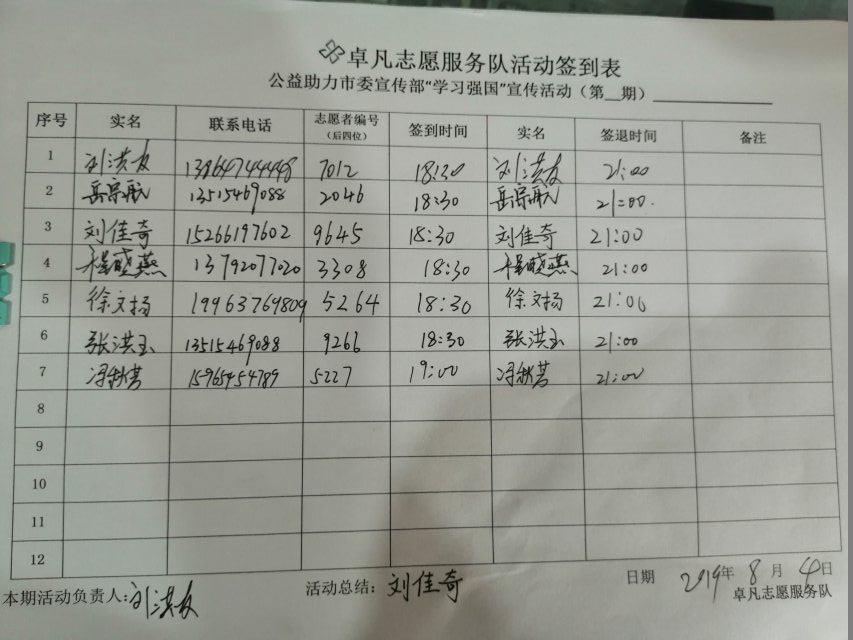 卓凡志愿服务队活动签到表
公益助力市委宣传部“学习强国”宣传活动（第__期）
序号 实名 联系电话 志愿者编号（后四位） 签到时间 实名 签退时间 备注
1 刘洪友 13964744448 7012 18:30 刘洪友 21:00
2 岳宗航 13515469088 2046 18:30 岳宗航 21:00.
3 刘佳奇 15266197602 9645 18:30 刘佳奇 21:00
4 程盛燕 13792077020 3308 18:30 程盛燕 21:00
5 徐文扬 19963769809 5264 18:30 徐文扬 21:00
6 张洪玉 13515469088 9266 18:30 张洪玉 21:00
7 冯秋茗 15965454789 5227 19:00 冯秋茗 21:00
8
9
10
11
12
本期活动负责人:刘洪友 活动总结: 刘佳奇 日期 2019年 8 月 4日
卓凡志愿服务队